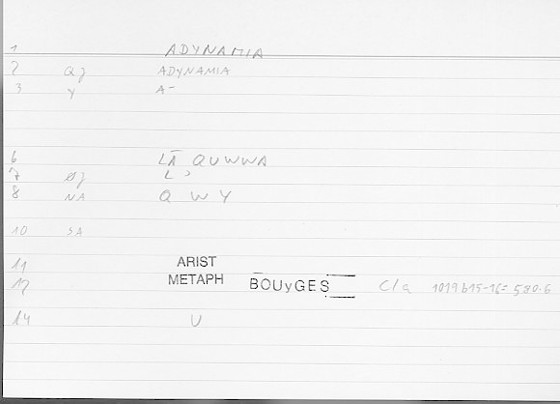 1 ADYNAMIA
2 Qg ADYNAMIA
3 Y A-
6 LĀ QUWWA
7 Øg L ʾ
8 NA Q W Y
10 SA
11 ARIST
12 METAPH BOUyGES C/a 1019b15-16= 580.6
14 U